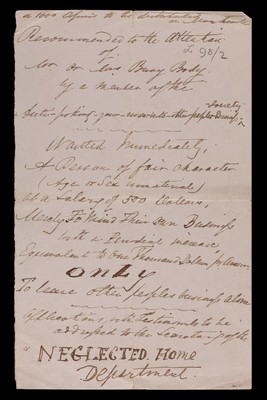 a 1000 Copies to be distributed
Recommended to the Attention
of
Mr or Mrs Busy Body
by a member of the
Society
poking-your-nose-into-other peoples-
Wanted Immediately,
A Person of fair character
(Age or Sex immaterial)
at a Salary of 500 Dollars,
Merely To Mind Their Own Business
with a Prudent
Equivalent to One Thousand Dollars per Annum.
ONLY
To leave other peoples business alone
Application, with Testimonials to be
addressed to the Secretary of the
"NEGLECTED HOME
Department.